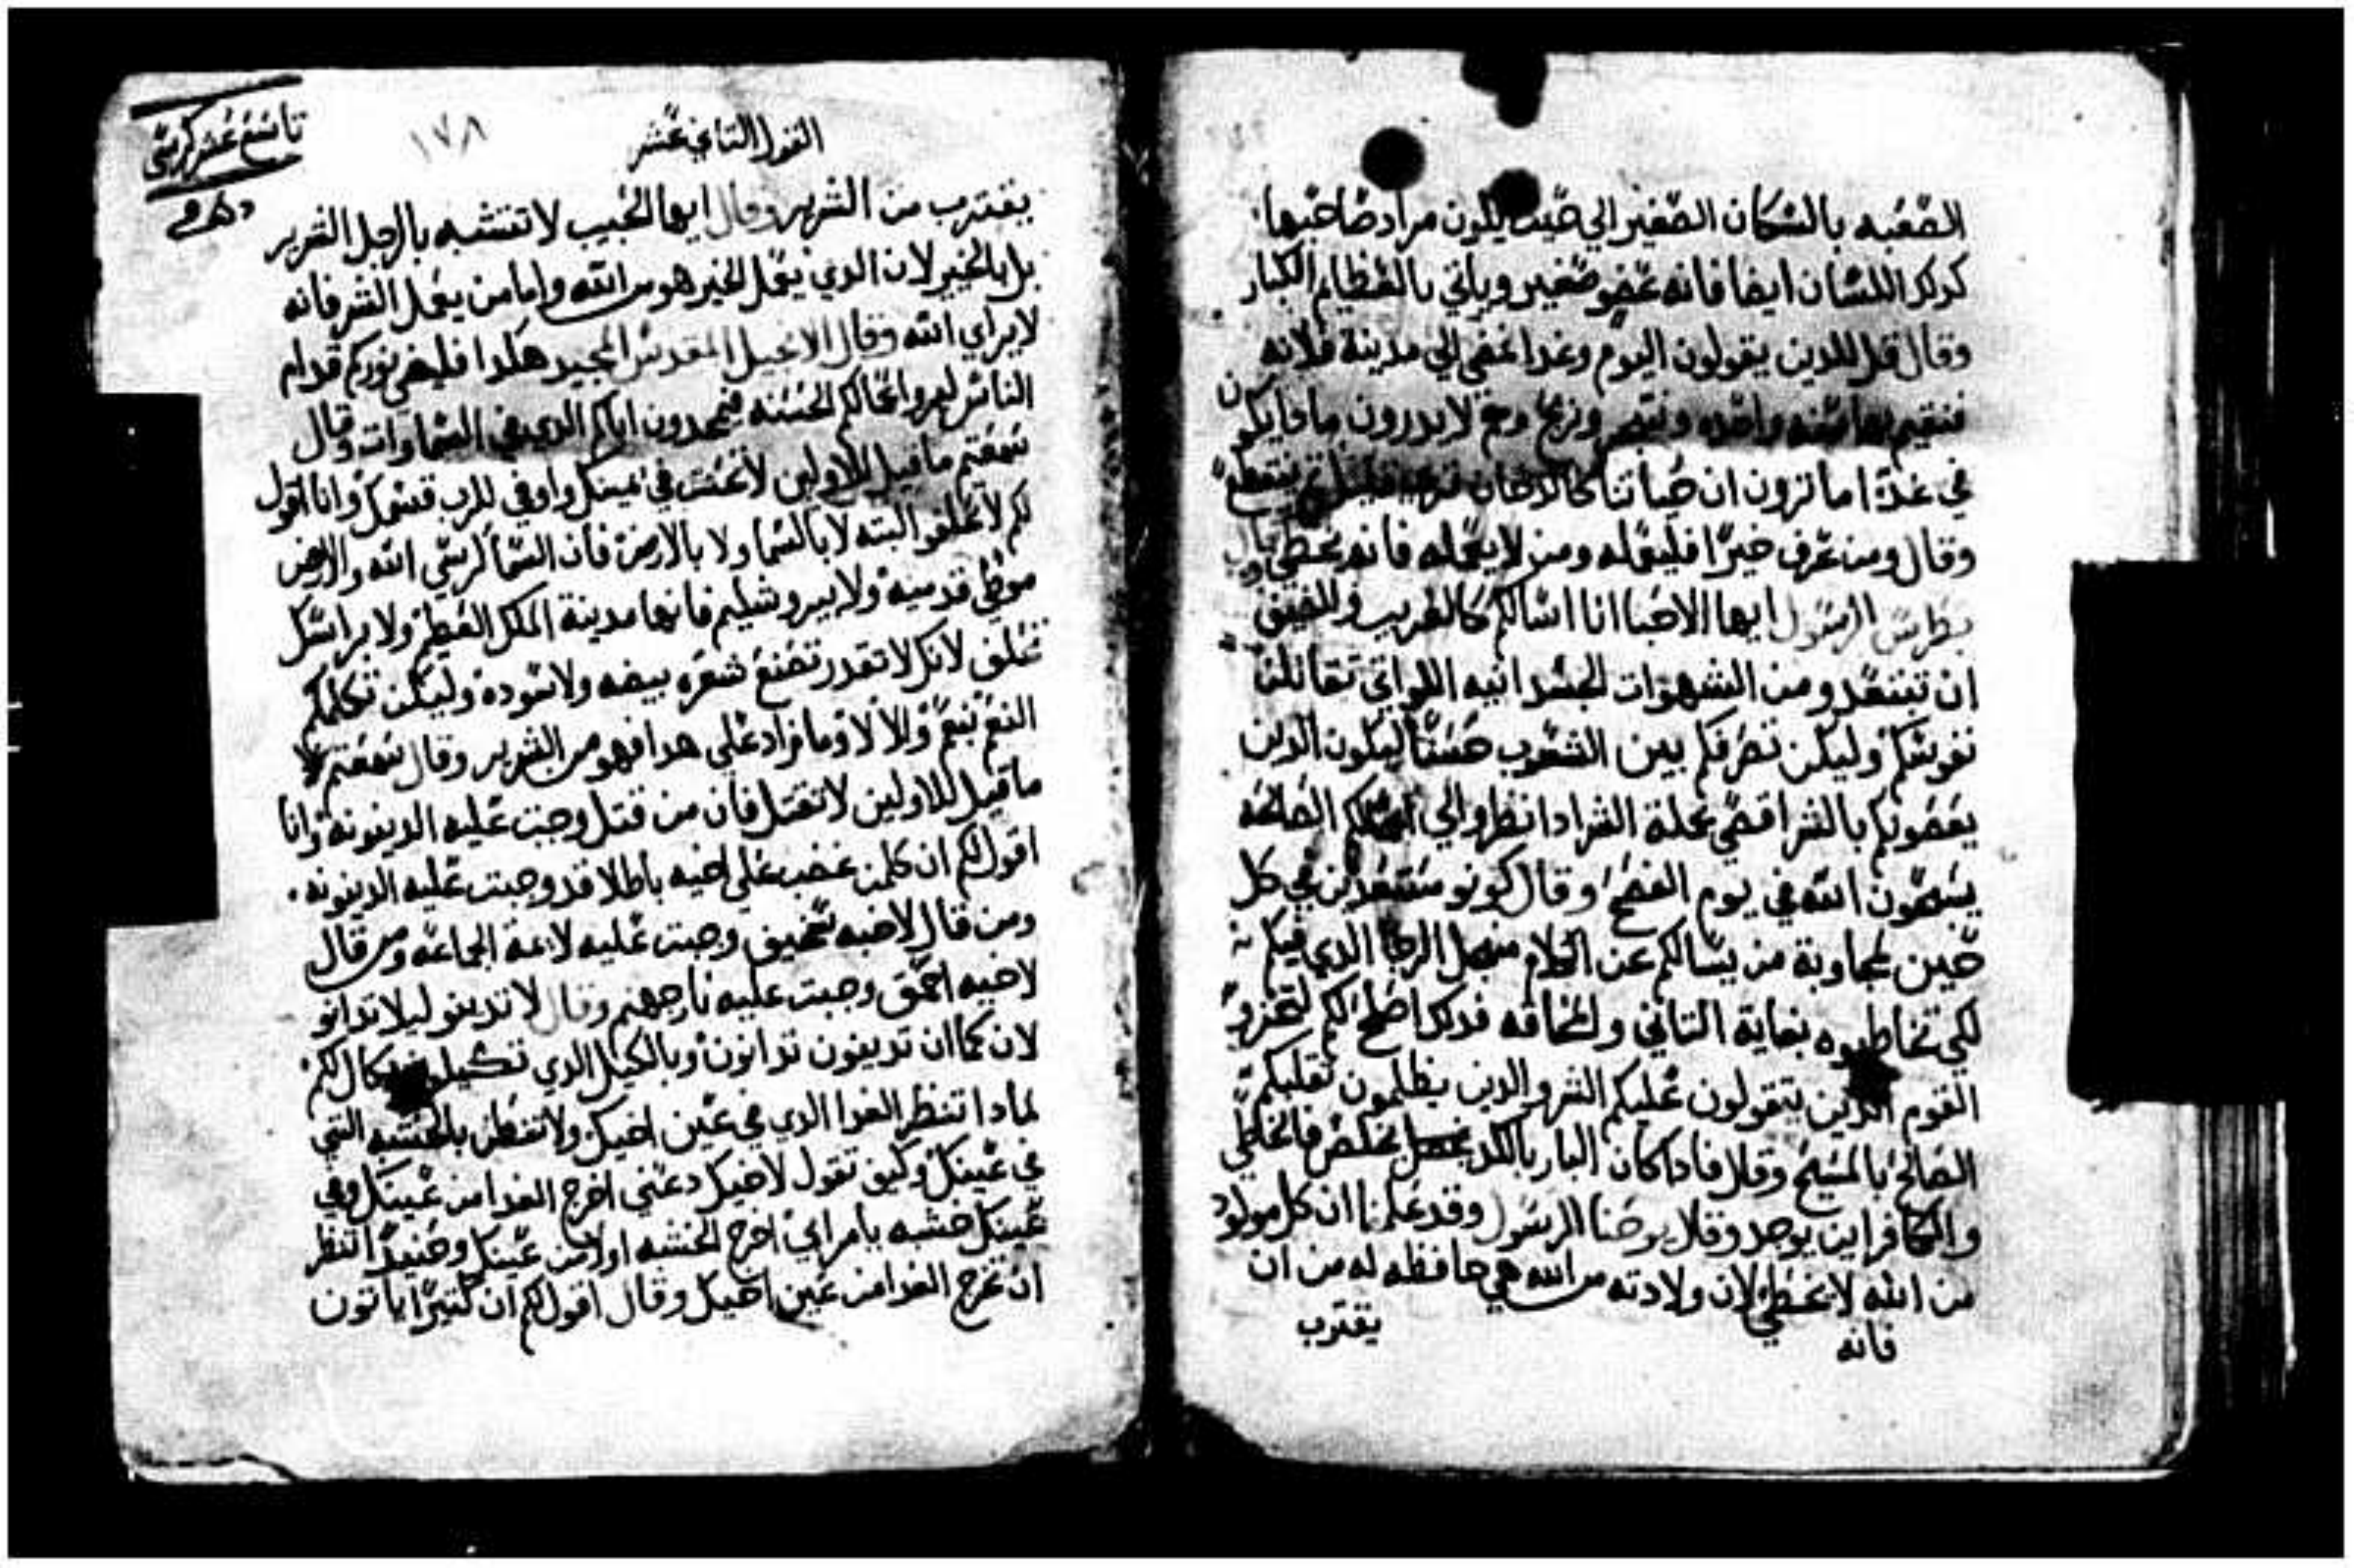 الصعبه بالسكان الصغير الي حيث يكون مراد صاحبها
كدلك اللسان ايضا فانه عضو صغير وياتي بالعظايم الكبار
وقال قل للدين يقولون اليوم وغدا نمضي الي مدينة فلانه
فنقيم بها سنه واحده ونتجر ونربح وهم لا يدرون مادا يكون
في غدا اما ترون ان حياتنا كالدخان
وقال ومن عرف خيرا فليعمله ومن لا يعمله فانه يخطي وقال
بطرس الرسول ايها الاحبا انا اسالكم كالغريب والضيف
ان تبتعدو من الشهوات الجسدانيه اللواتي تقاتلن
نفوسكم وليكن تصرفكم بين الشعوب حسنا ليكون الدين
يغصونكم بالشر اقصي عملة الشر ادا نظروا الي اعمالكم الصالحه
يسبحون الله في يوم الفصح وقال كونو مستعدين في كل
حين لمجاوبة من يسالكم عن الكلام من اجل الرجا الدي فيكم
لكي تخاطبوه بغاية التاني والمخافه فدلك اصلح لكم لتخزو
القوم الدين يتقولون عليكم الشر والدين يظلمون تقلبكم
الصالح بالمسيح وقال فادا كان البار بالكد يخلص فالخاطي
والكافر اين يوجد وقال يوحنا الرسول وقد علمنا ان كل مولود
من الله لا يخطي لان ولادته من الله هي حافظه له من ان
فانه يقترب
القول التاسع عشر
١٧٨
تاسع عشر كرسي
يقترب من الشرير وقال ايها الحبيب لا تتشبه بالرجل الشرير
بل بالخير لان الدي يعمل الخير هو من الله واما من يعمل الشر فانه
لا يراي الله وقال الانجيل المقدس المجيد هكدا فليضي نوركم قدام
الناس ليروا اعمالكم الحسنه فيمجدون اباكم الدي في السماوات وقال
سمعتم ما قيل للاولين لا تحنث في يمينك واوفي للرب قسمك وانا اقول
لكم لا تحلفو البته لا بالسما ولا بالارض فان السما كرسي الله والارض
موطي قدميه ولا بيروشليم فانها مدينة الملك العظيم ولا براسك
تحلف لانك لا تقدر تصنع شعره بيضه ولا سوده وليكن كلامكم
النعم نعم واللا لا وما زاد علي هدا فهو من الشرير وقال سمعتم
ما قيل للاولين لا تقتل فان من قتل وجبت عليه الدينونه وانا
اقول لكم ان كلمن غضب علي اخيه باطلا قد وجبت عليه الدينونه
ومن قال لاخيه سخيف وجبت عليه لاعة الجماعه ومن قال
لاخيه احمق وجبت عليه نار جهنم وقال لا تدينو ليلا تدانو
لان كما ان تدينون تدانون وبالكيل الدي تكيلو يكال لكم
لمادا تنظر القدا الدي في عين اخيك ولا تفطن بالخشبه التي
في عينك وكيف تقول لاخيك دعني اخرج القدا من عينك وفي
عينك خشبه يا مرايي اخرج الخشبه اولا من عينك وحنيدا انظر
ان تخرج القدا من عين اخيك وقال اقول لكم ان كتيرا ياتون